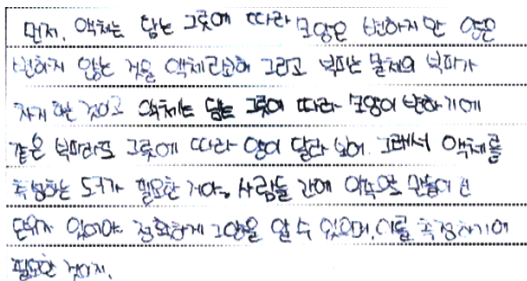 먼저, 액체는 담는 그릇에 따라 모양은 변하지만 양은
변하지 않는 것을 액체라고해 그리고 부피는 물체의 부피가
차지한 것이고 액체는 담는 그릇에 따라 모양이 변하기에
같은 부피라도 그릇에 따라 양이 달라 보여. 그래서 액체를
측정하는 도구가 필요한 거야. 사람들 간에 약속으로 만들어진
단위가 있어야 정확하게 그 양을 알 수 있으며, 이를 측정하기에
필요한 것이지.